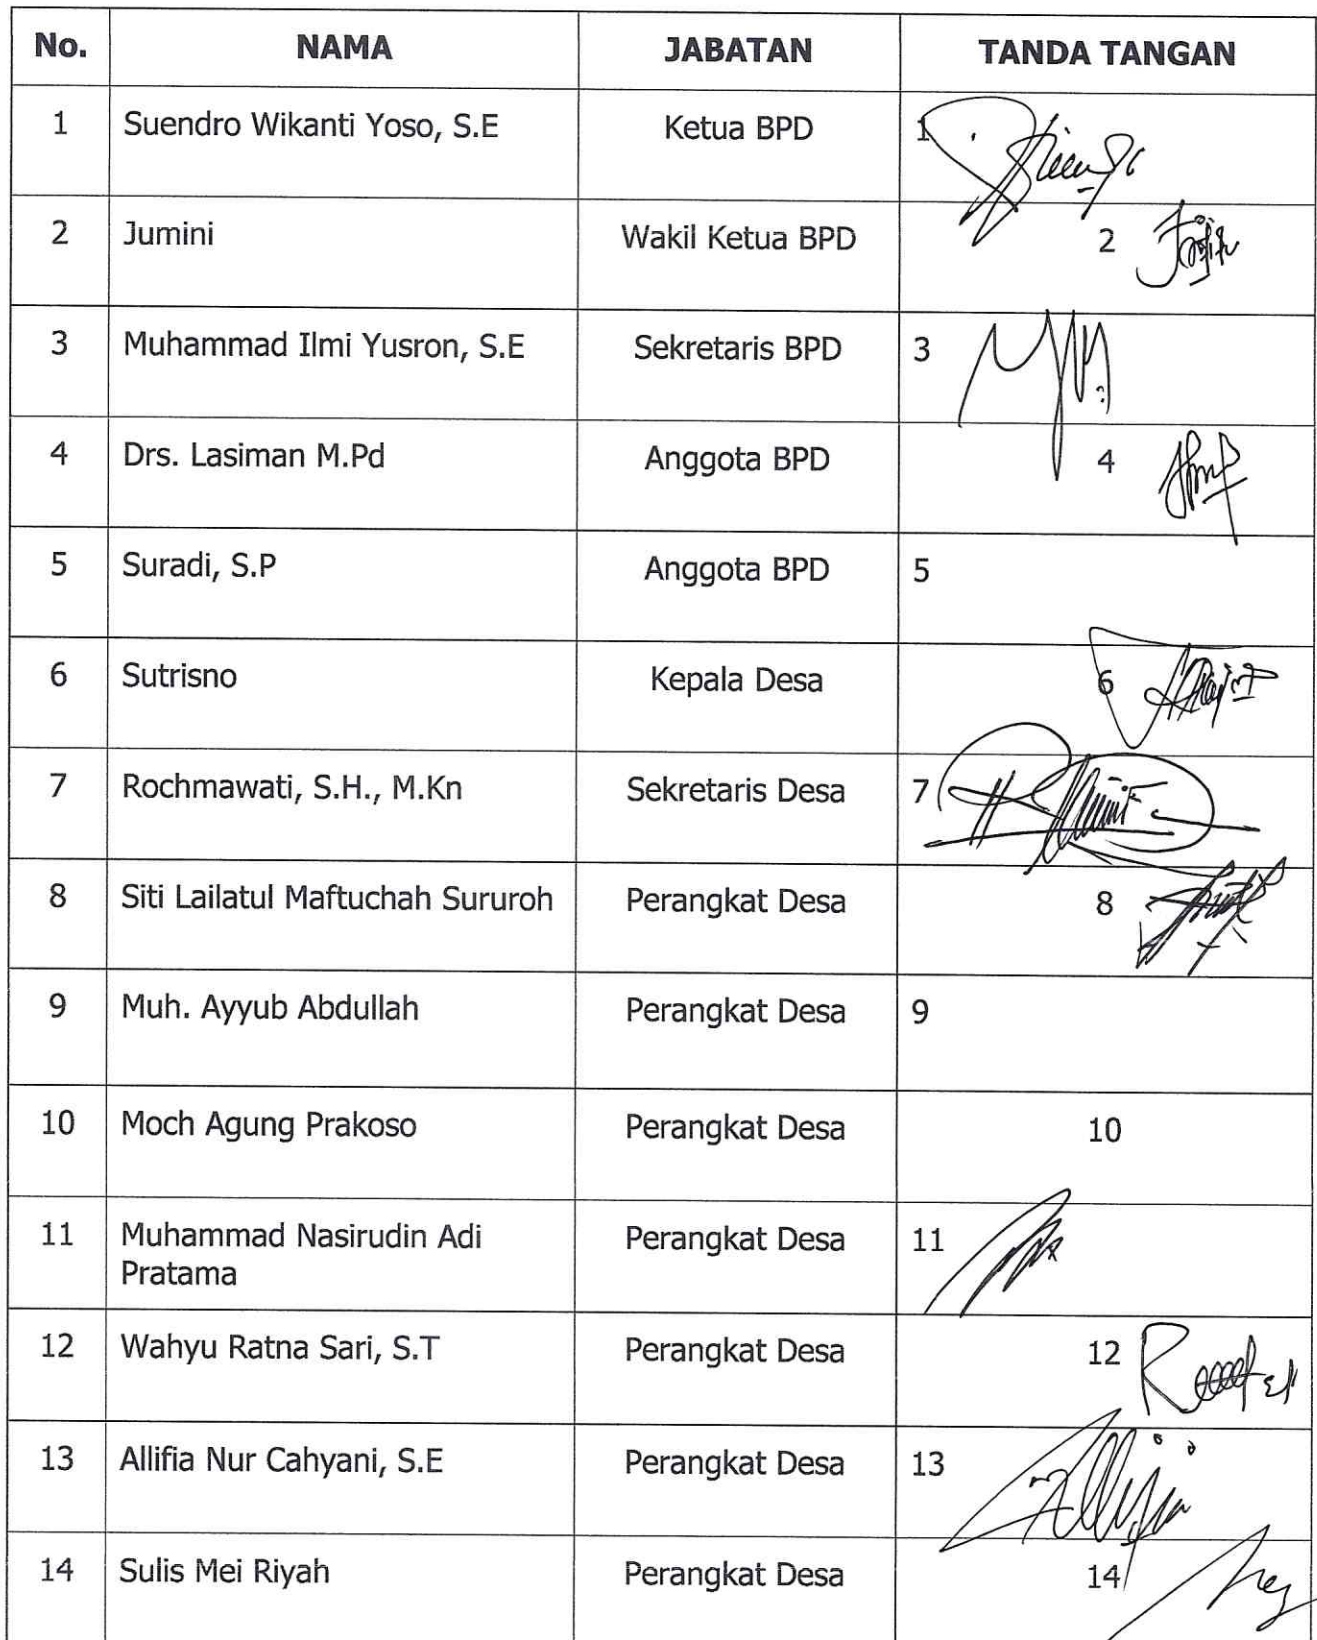 No. NAMA JABATAN TANDA TANGAN
1 Suendro Wikanti Yoso, S.E Ketua BPD 1
2 Jumini Wakil Ketua BPD 2
3 Muhammad Ilmi Yusron, S.E Sekretaris BPD 3
4 Drs. Lasiman M.Pd Anggota BPD 4
5 Suradi, S.P Anggota BPD 5
6 Sutrisno Kepala Desa 6
7 Rochmawati, S.H., M.Kn Sekretaris Desa 7
8 Siti Lailatul Maftuchah Sururoh Perangkat Desa 8
9 Muh. Ayyub Abdullah Perangkat Desa 9
10 Moch Agung Prakoso Perangkat Desa 10
11 Muhammad Nasirudin Adi Perangkat Desa 11
Pratama
12 Wahyu Ratna Sari, S.T Perangkat Desa 12
13 Allifia Nur Cahyani, S.E Perangkat Desa 13
14 Sulis Mei Riyah Perangkat Desa 14